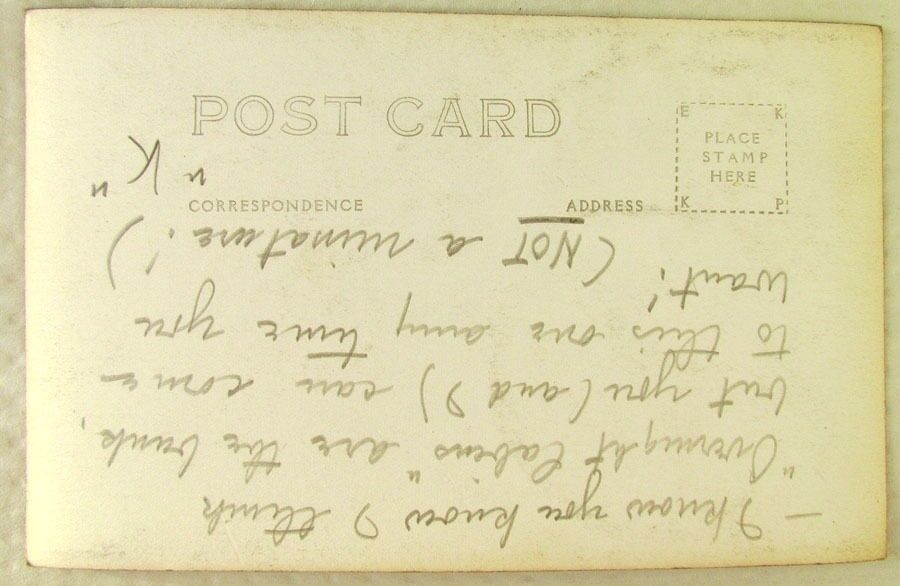 POST CARD
CORRESPONDENCE
ADDRESS
E K
PLACE
STAMP
HERE
K P
— I know you know I think
"Overnight Cabins" are the bunk,
but you (and I) can come
to this one any time you
want! (NOT a minature!)
"K"